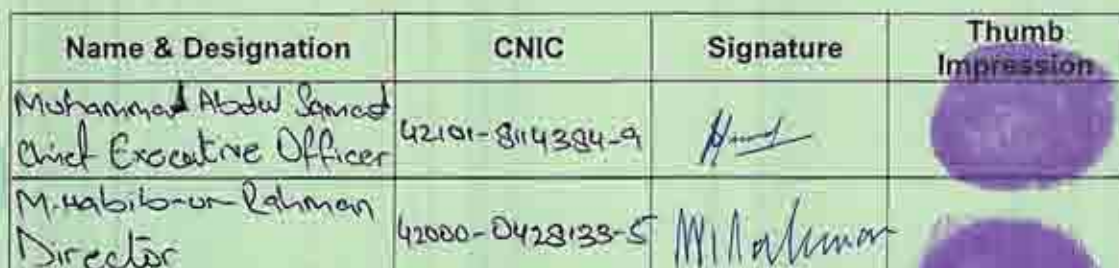 Name & Designation CNIC Signature Thumb Impression
Muhammad Abdul Samad
Chief Executive Officer 42101-8114384-9
M. Habib-ur-Rahman
Director 42000-0428133-5 MRahman